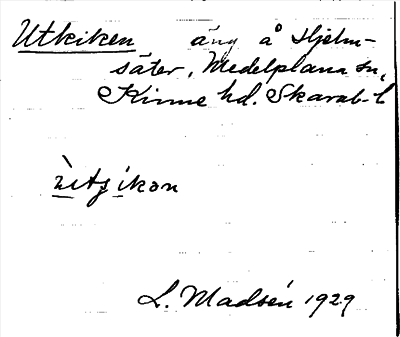 Utkiken äng å Hjelm-
säter, Medelplana sn,
Kinne hd. Skarab. l
L. Madsén 1929